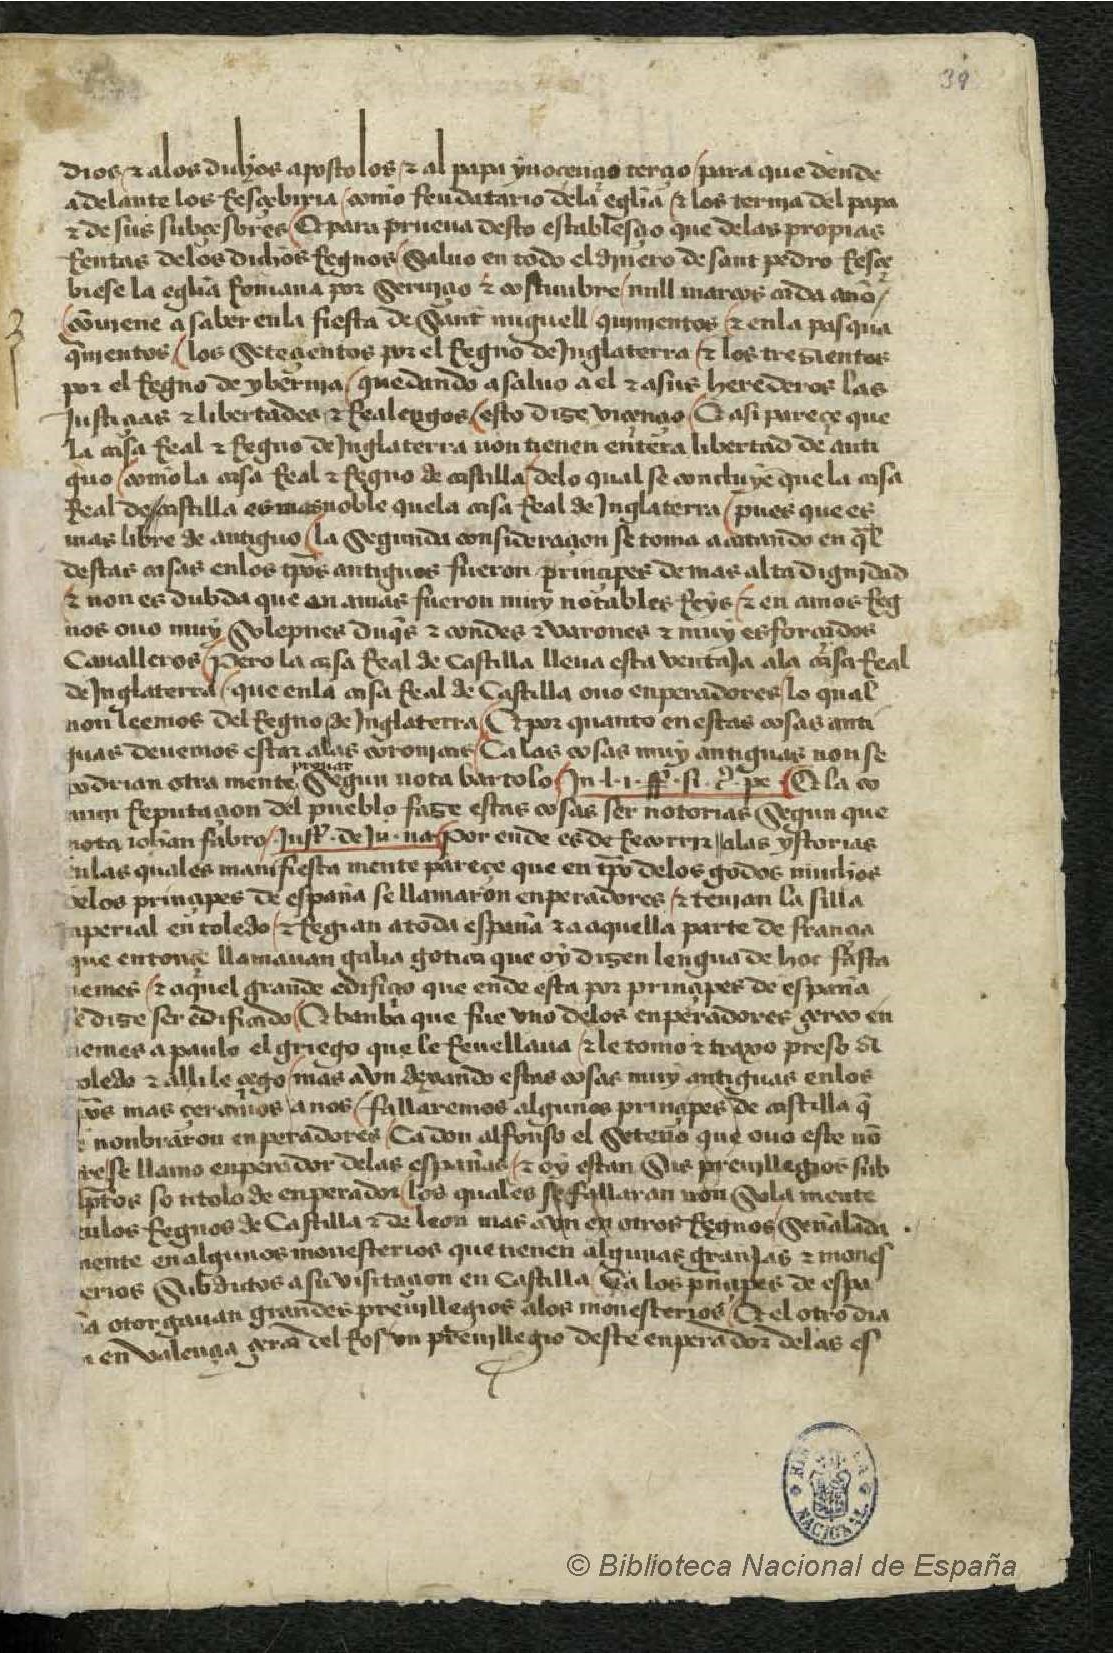 39
dios / & alos dichos apostolos / & al papa ynoçençio terçio / para que dende
adelante los Resçebiria / como feudatario dela eglĩa / & los ternia del papa
& de sus subçesores / E para prueua desto establesçio que delas propias
Rentas delos dichos Regnos / Saluo en todo el dinero de sant pedro Resçe
biese la eglĩa Romana por Seruiçio & costunbre / mill marcos cada año /
conuiene a saber enla fiesta de Sant miguell / quinientos / & enla pasqua
quinientos / los Seteçientos por el Regno de Inglaterra / & los tresientos
por el Regno de ybernia / quedando a saluo a el & a sus herederos las
Justiçias & libertades & Realengos / esto dise viçençio / E asi pareçe que
la casa Real & Regno de Inglaterra non tienen entera libertad de anti
guo / como la casa Real & Regno de castilla / delo qual se concluye que la casa
Real de castilla es mas noble que la casa Real de Inglaterra / pues que es
mas libre de antiguo / la Segunda consideraçion se toma acatando en ql̃
destas casas enlos tpõs antiguos fueron prinçipes de mas alta dignidad
& non es dubda que en amas fueron muy notables Reys / & en amos Reg
nos ouo muy Solepnes duq̃s & condes & varones & muy esforçados
Caualleros / Pero la casa Real de Castilla lleua esta ventaja ala casa Real
de Inglaterra / que enla casa Real de Castilla ouo enperadores / lo qual
non leemos del Regno de Inglaterra / E por quanto en estas cosas anti
guas deuemos estar alas coronicas / Ca las cosas muy antiguas non se
podrian otra mente prouar Segun nota bartolo / In .l.i. ff. si. çr. pe. / E la co
mun Reputaçion del pueblo fase estas cosas ser notorias Segun que
nota iohan fabro / Inst̃. de Iu. na. / Por ende es de Recorrir alas ystorias
enlas quales manifiesta mente pareçe que en tpõ delos godos muchos
delos prinçipes de españa se llamaron enperadores / & tenian la silla
inperial en toledo / & Regian a toda españa & a aquella parte de françia
que entonçe llamauan galia gotica que oy disen lengua de hoc fasta
nemes / & aquel grande edifiçio que ende esta por prinçipes de españa
se dise ser edificado / E banba que fue vno delos enperadores çerco en
nemes a paulo el griego que le Reuellaua / & le tomo & traxo preso a
toledo & alli le çego / mas avn dexando estas cosas muy antiguas enlos
tpõs mas çercanos anos / fallaremos algunos prinçipes de castilla q̃
se nonbraron enperadores / Ca don alfonso el Seteno que ouo este nõ
bre se llamo enperador delas españas / & oy estan Sus preuillegios sub
scriptos so titolo de enperador / los quales se fallaran non Sola mente
enlos Regnos de Castilla & de leon mas avn en otros Regnos / Señalada
mente en algunos monesterios que tienen algunas granjas & mones
terios Subditos a su visitaçion en Castilla / Ca los prĩçipes de espa
ña otorgauan grandes preuillegios alos monesterios / E el otro dia
vi en valençia çerca del Ros vn preuillegio deste enperador delas es
BIBLIOTECA NACIONAL
© Biblioteca Nacional de España